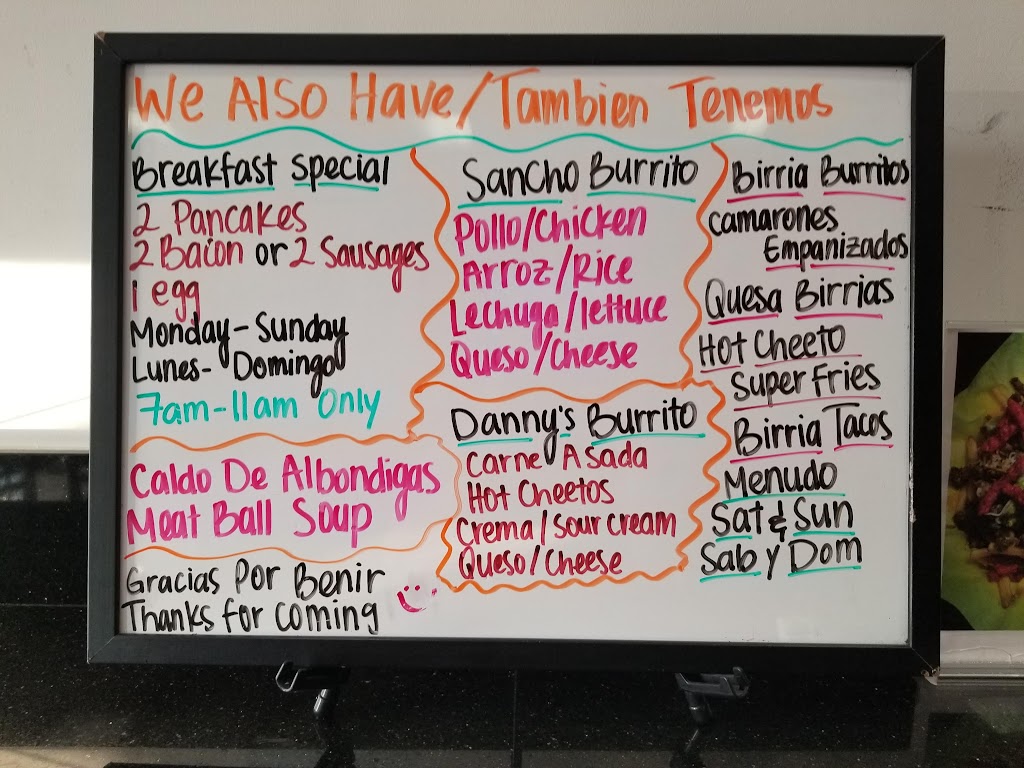 We Also Have/Tambien Tenemos
Breakfast special
2 Pancakes
2 Bacon or 2 Sausages
1 egg
Monday-Sunday
Lunes- Domingo
7am-11am Only
Caldo De Albondigas
Meat Ball Soup
Gracias Por Benir
Thanks for coming
Sancho Burrito
Pollo/Chicken
Arroz/Rice
Lechuga/lettuce
Queso/Cheese
Danny's Burrito
Carne Asada
Hot Cheetos
Crema/sour cream
Queso/Cheese
Birria Burritos
Camarones
Empanizados
Quesa Birrias
Hot Cheeto
Super Fries
Birria Tacos
Menudo
Sat & Sun
Sab y Dom